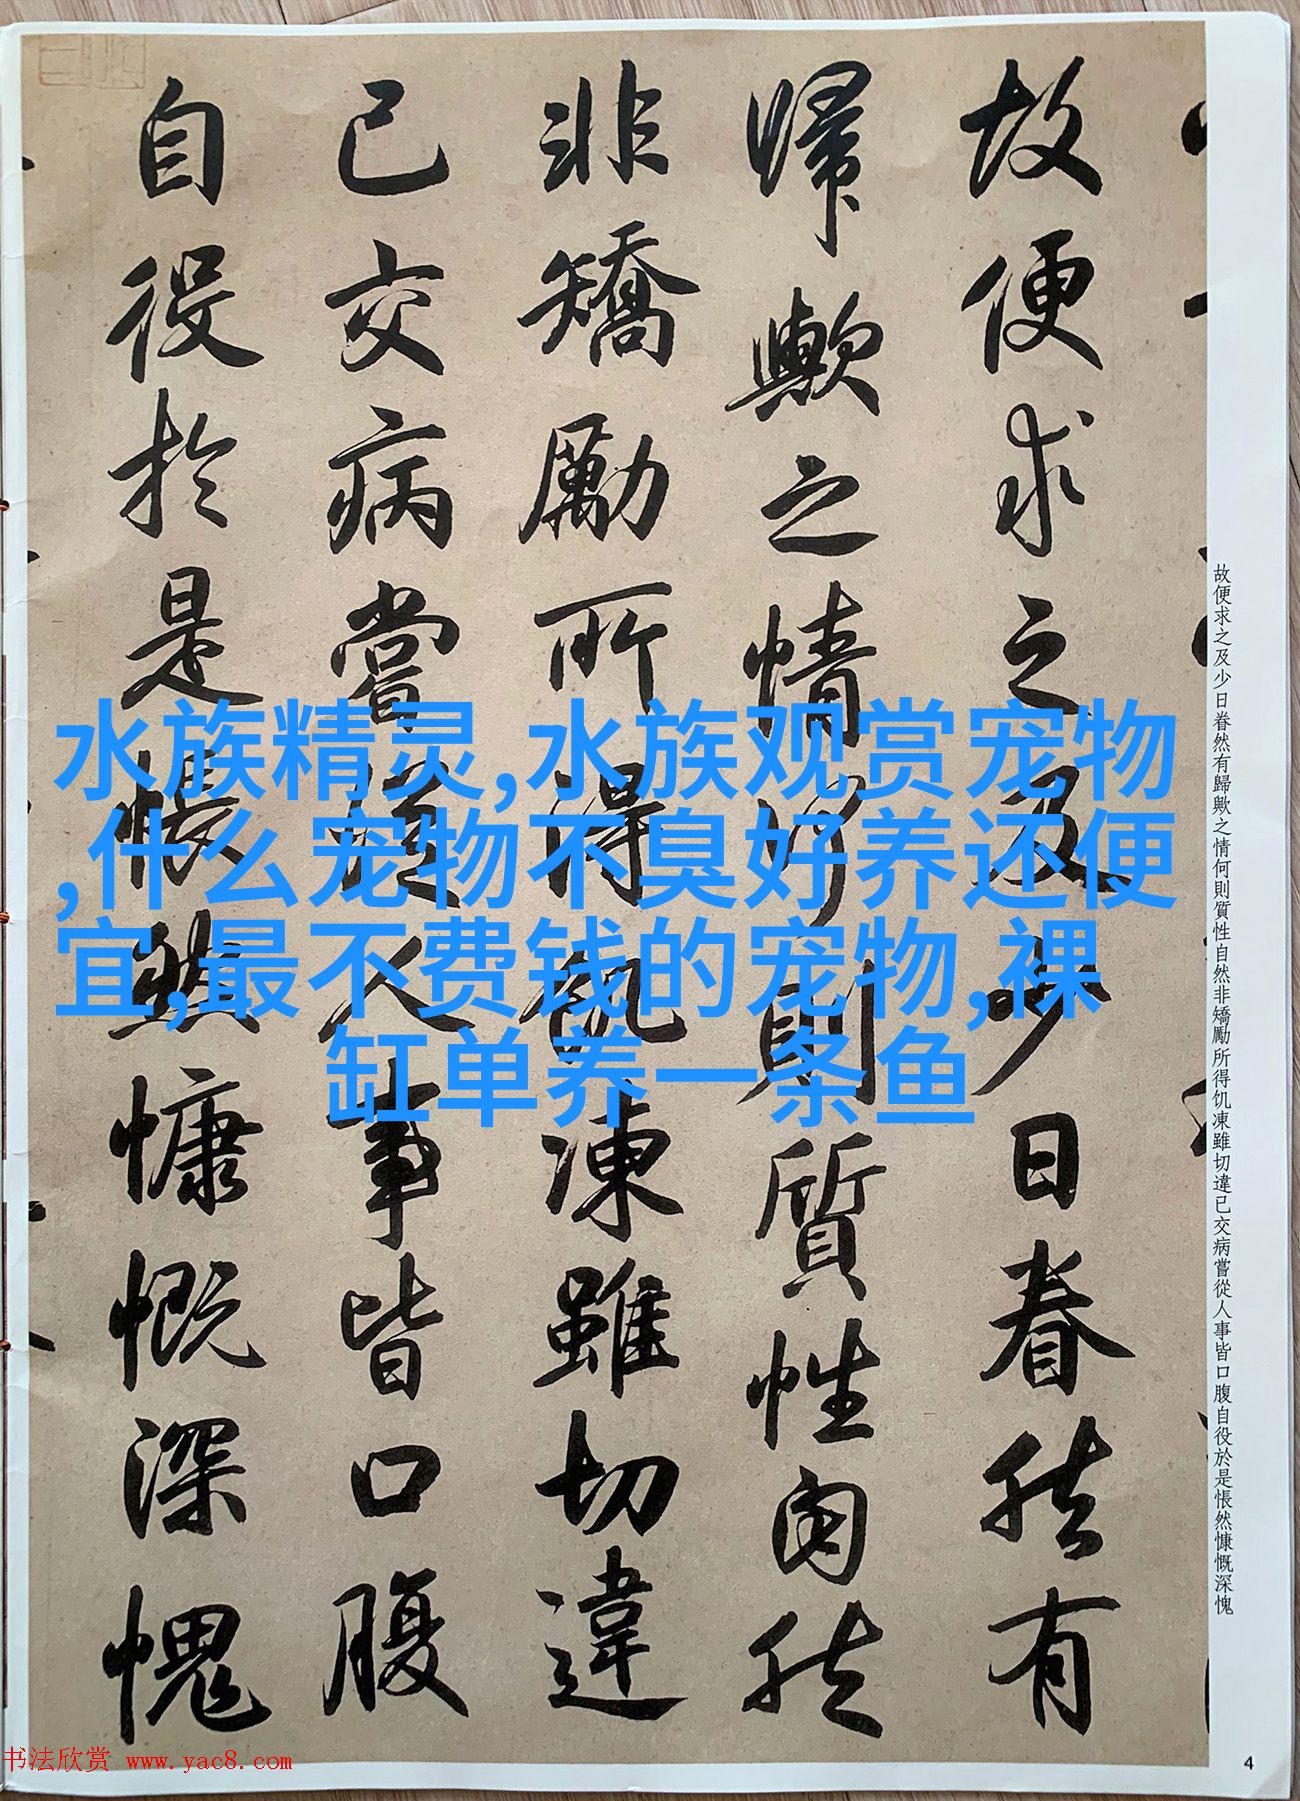 故便求之及少日眷然有
歸歟之情何則質性自然
非矯勵所得飢凍雖切違
已交病嘗從人事皆口腹
自役於是悵然慷慨深愧
故便求之及少日眷然有歸歟之情何則質性自然非矯勵所得饥凍雖切違已交病嘗從人事皆口腹自役於是悵然慷慨深愧
水族精灵,水族观赏宠物
,什么宠物不臭好养还便
宜,最不费钱的宠物,裸
缸单养一条鱼
书法欣赏 www.yac8.com
4